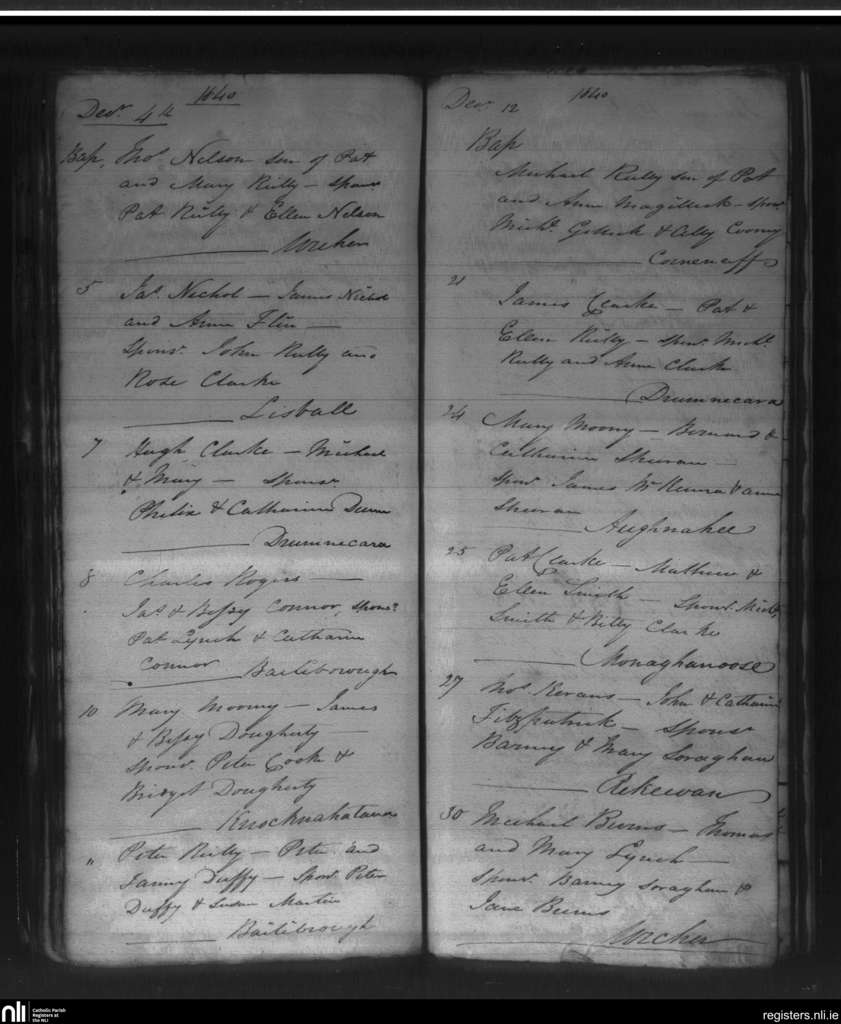 1840
Decr 4th
Bap. Thos Nelson son of Pat
and Mary Reilly - Spons
Pat Reilly & Ellen Nelson
Urcher
5 Jas. Nechol - James Nichol
and Anne Flin -
Sponsr. John Reilly and
Rose Clarke
Lisball
7 Hugh Clarke - Michael
& Mary - Sponsr
& Catharine Dunn
Drumnecara
8 Charles Rogers -
Jas & Bessy Connor, Sponsr
Pat Lynch & Catharine
Connor Bailieborough
10 Mary Moony - James
& Bessy Dougherty -
Sponsr. Peter Cooke &
Bridget Dougherty
Knocknahatawn
" Peter Reilly - Peter and
Fanny Duffy - Sponr Peter
Duffy & Susan Martin
Bailieborough
Decr 12 1840
Bap
Michael Reilly son of Pat
and Anne Magillick - Sponr.
Michl. Gillick & Ally Coony
21
James Clarke - Pat &
Ellen Reilly - Sponr. Michl.
Reilly and Anne Clarke
Drumnecara
24 Mary Moony - Bernard &
Catharine
Sponr James & Anne
Aughnahee
25 Pat Clarke - Mathew &
Ellen Smith - Sponr. Michl.
Smith & Bitty Clarke
Monaghanoose
27 Thos Kerans - John & Catharine
Fitzpatrick - Sponsr
Barney & Mary Soraghan
Rekewan
30 Michael Burns - Thomas
and Mary Lynch -
Sponsr. Barney Soraghan &
Jane Burns
Urcher
nli
Catholic Parish
Registers at
the NLI
registers.nli.ie